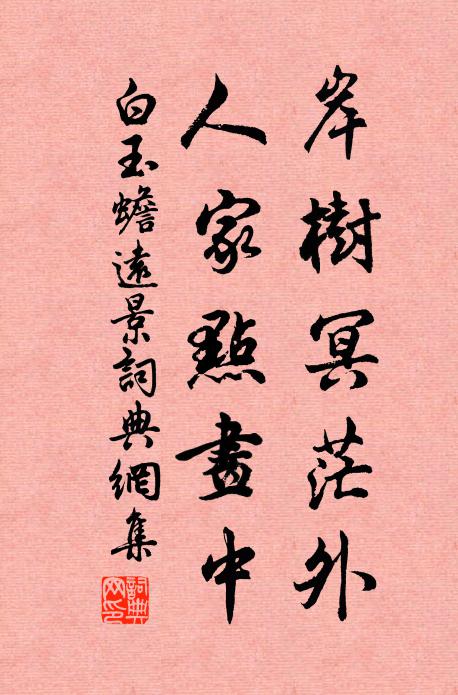 岸樹冥茫外
人家點畫中
白玉蟾遠景詞典網集
詞典網印